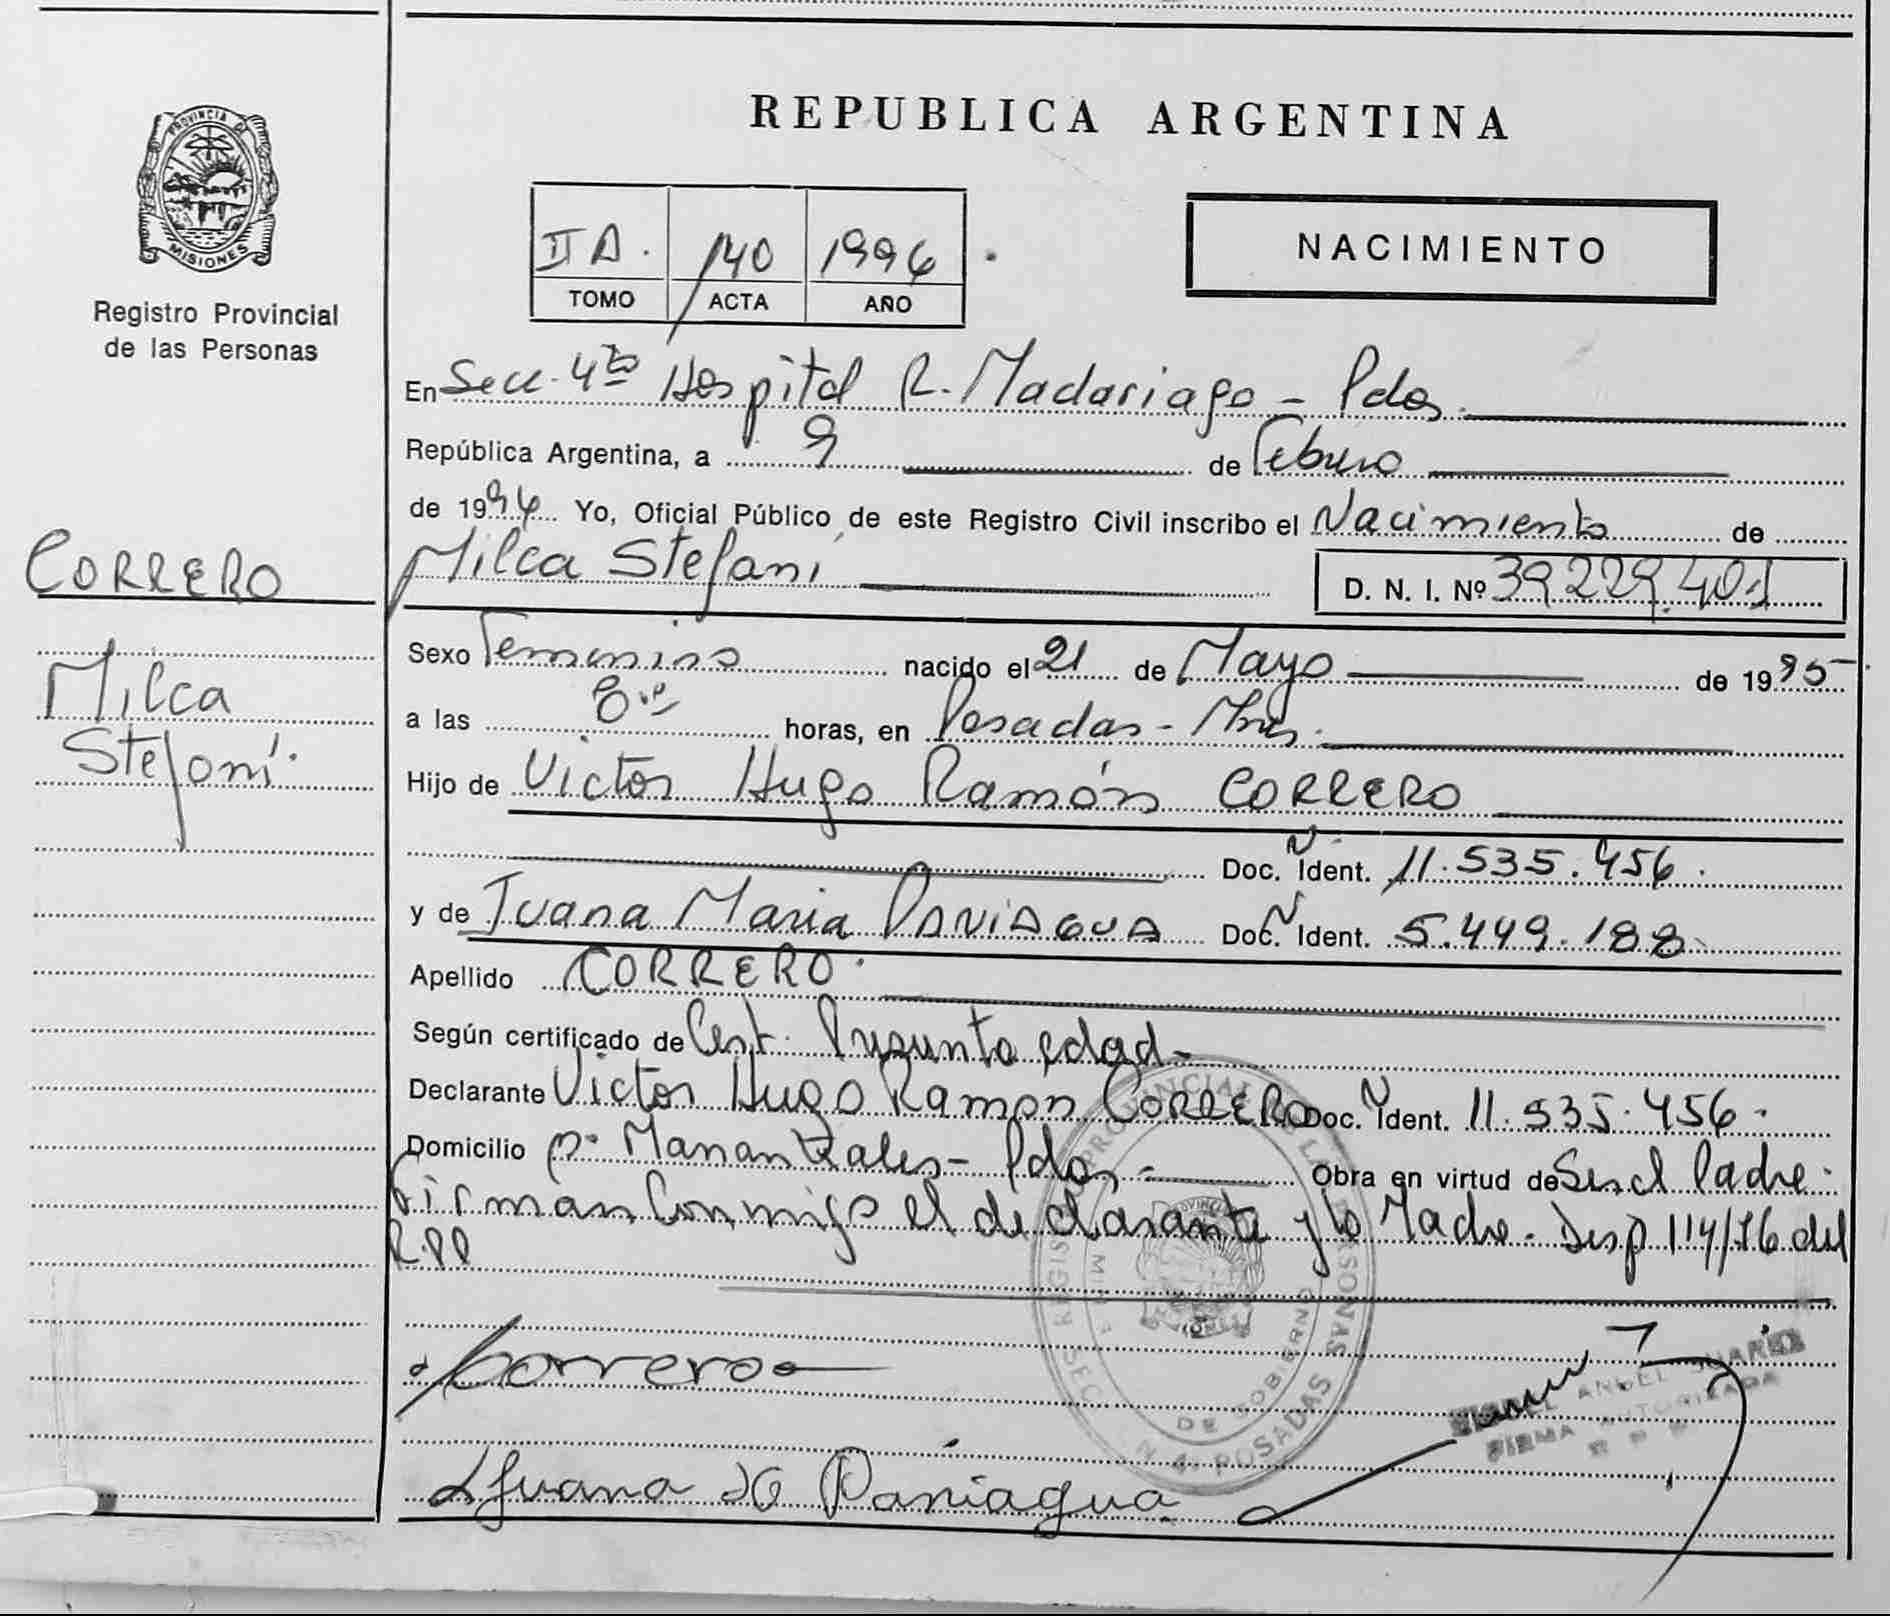 PROVINCIA DE
MISIONES
Registro Provincial
de las Personas
CORRERO
Milca
Stefani
REPUBLICA ARGENTINA
II A. 140 1996
TOMO ACTA AÑO
NACIMIENTO
En Secc. 4ta Hospital R. Madariaga - Pdas.
República Argentina, a 9 de Febrero
de 1996 Yo, Oficial Público de este Registro Civil inscribo el Nacimiento de
Milca Stefani D. N. I. Nº 39.229.401
Sexo Femenino nacido el 21 de Mayo de 1995
a las 8 horas, en Posadas - Mnes.
Hijo de Victor Hugo Ramón CORRERO
Doc. N Ident. 11.535.456.
y de Juana Maria PANIAGUA Doc. N Ident. 5.449.188
Apellido CORRERO.
Según certificado de Cert. Presunta edad-
Declarante Victor Hugo Ramon CORRERO Doc. N Ident. 11.535.456.
Domicilio Manantiales - Pdas. Obra en virtud de Ser el Padre.
Firman Conmigo el declarante y la Madre. Disp 114/76 del
R.PP
Correro
Juana M Paniagua
ANGEL SUAREZ
FIRMA AUTORIZADA
REGISTRO PROVINCIAL DE LAS PERSONAS
DE GOBIERNO
SECC. N 4. POSADAS